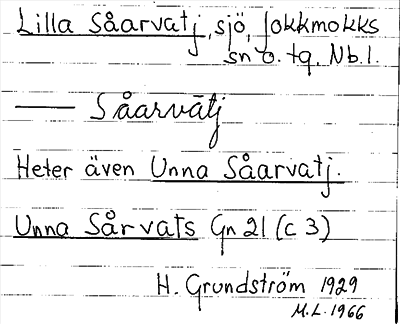 Lilla Såarvatj, sjö, Jokkmokks
sn o. tg, Nb.l.
—— Såarvātj
Heter även Unna Såarvatj.
Unna Sårvats Gn 21 (c 3)
H. Grundström 1929
M.L. 1966